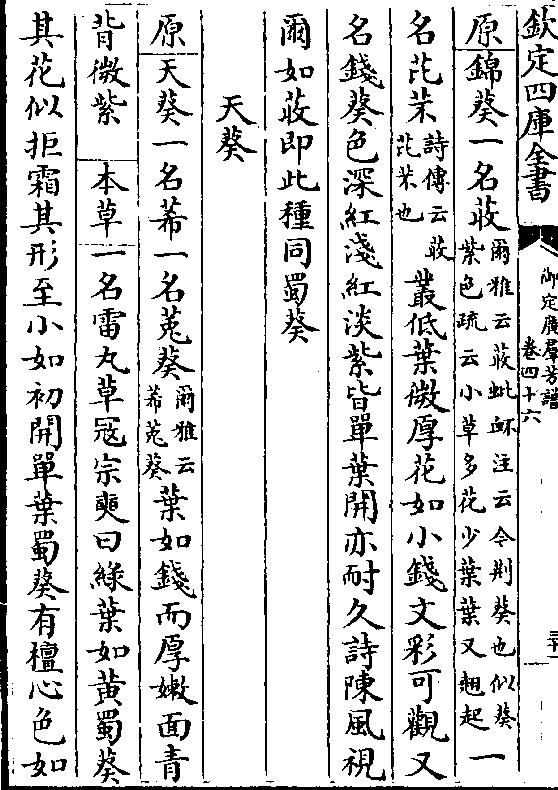 欽定四庫全書
御定廣羣芳譜
卷四十六
三十一
原錦葵一名荍爾雅云荍蚍衃注云今荆葵也似葵紫色疏云小草多花少葉葉又翹起一
名芘芣詩傳云荍芘芣也叢低葉微厚花如小錢文彩可觀又
名錢葵色深紅淺紅淡紫皆單葉開亦耐久詩陳風視
爾如荍即此種同蜀葵
天葵
原天葵一名莃一名菟葵爾雅云莃菟葵葉如錢而厚嫩面青
背微紫 本草一名雷丸草寇宗奭曰綠葉如黃蜀葵
其花似拒霜其形至小如初開單葉蜀葵有檀心色如